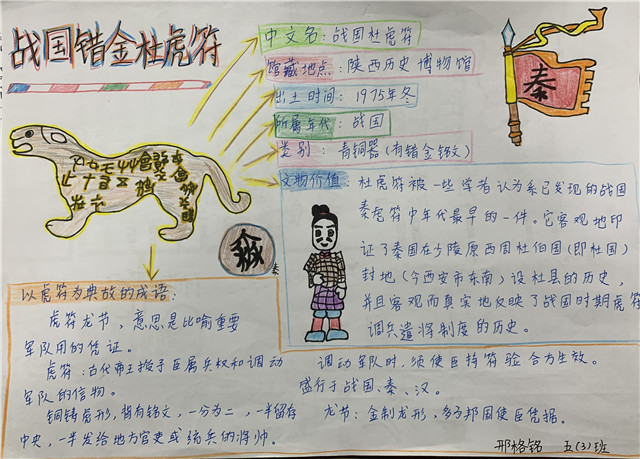 战国错金杜虎符
中文名：战国杜虎符
馆藏地点：陕西历史博物馆
出土时间：1975年冬
所属年代：战国
类别：青铜器（有错金铭文）
秦
文物价值：杜虎符被一些学者认为系已发现的战国
秦虎符中年代最早的一件。它客观地印
证了秦国在少陵原西周杜伯国（即杜国）
封地（今西安市东南）设杜县的历史，
并且客观而真实地反映了战国时期虎符
调兵遣将制度的历史。
以虎符为典故的成语：
虎符龙节，意思是比喻重要
军队用的凭证。
虎符：古代帝王授予臣属兵权和调动
军队的信物。
铜铸虎形，背有铭文，一分为二，一半留存
中央，一半发给地方官吏或统兵的将帅。
调动军队时，须使臣持符验合方生效。
盛行于战国、秦、汉。
龙节：金制龙形，多为邦国使臣凭据。
邢格铭 五（3）班